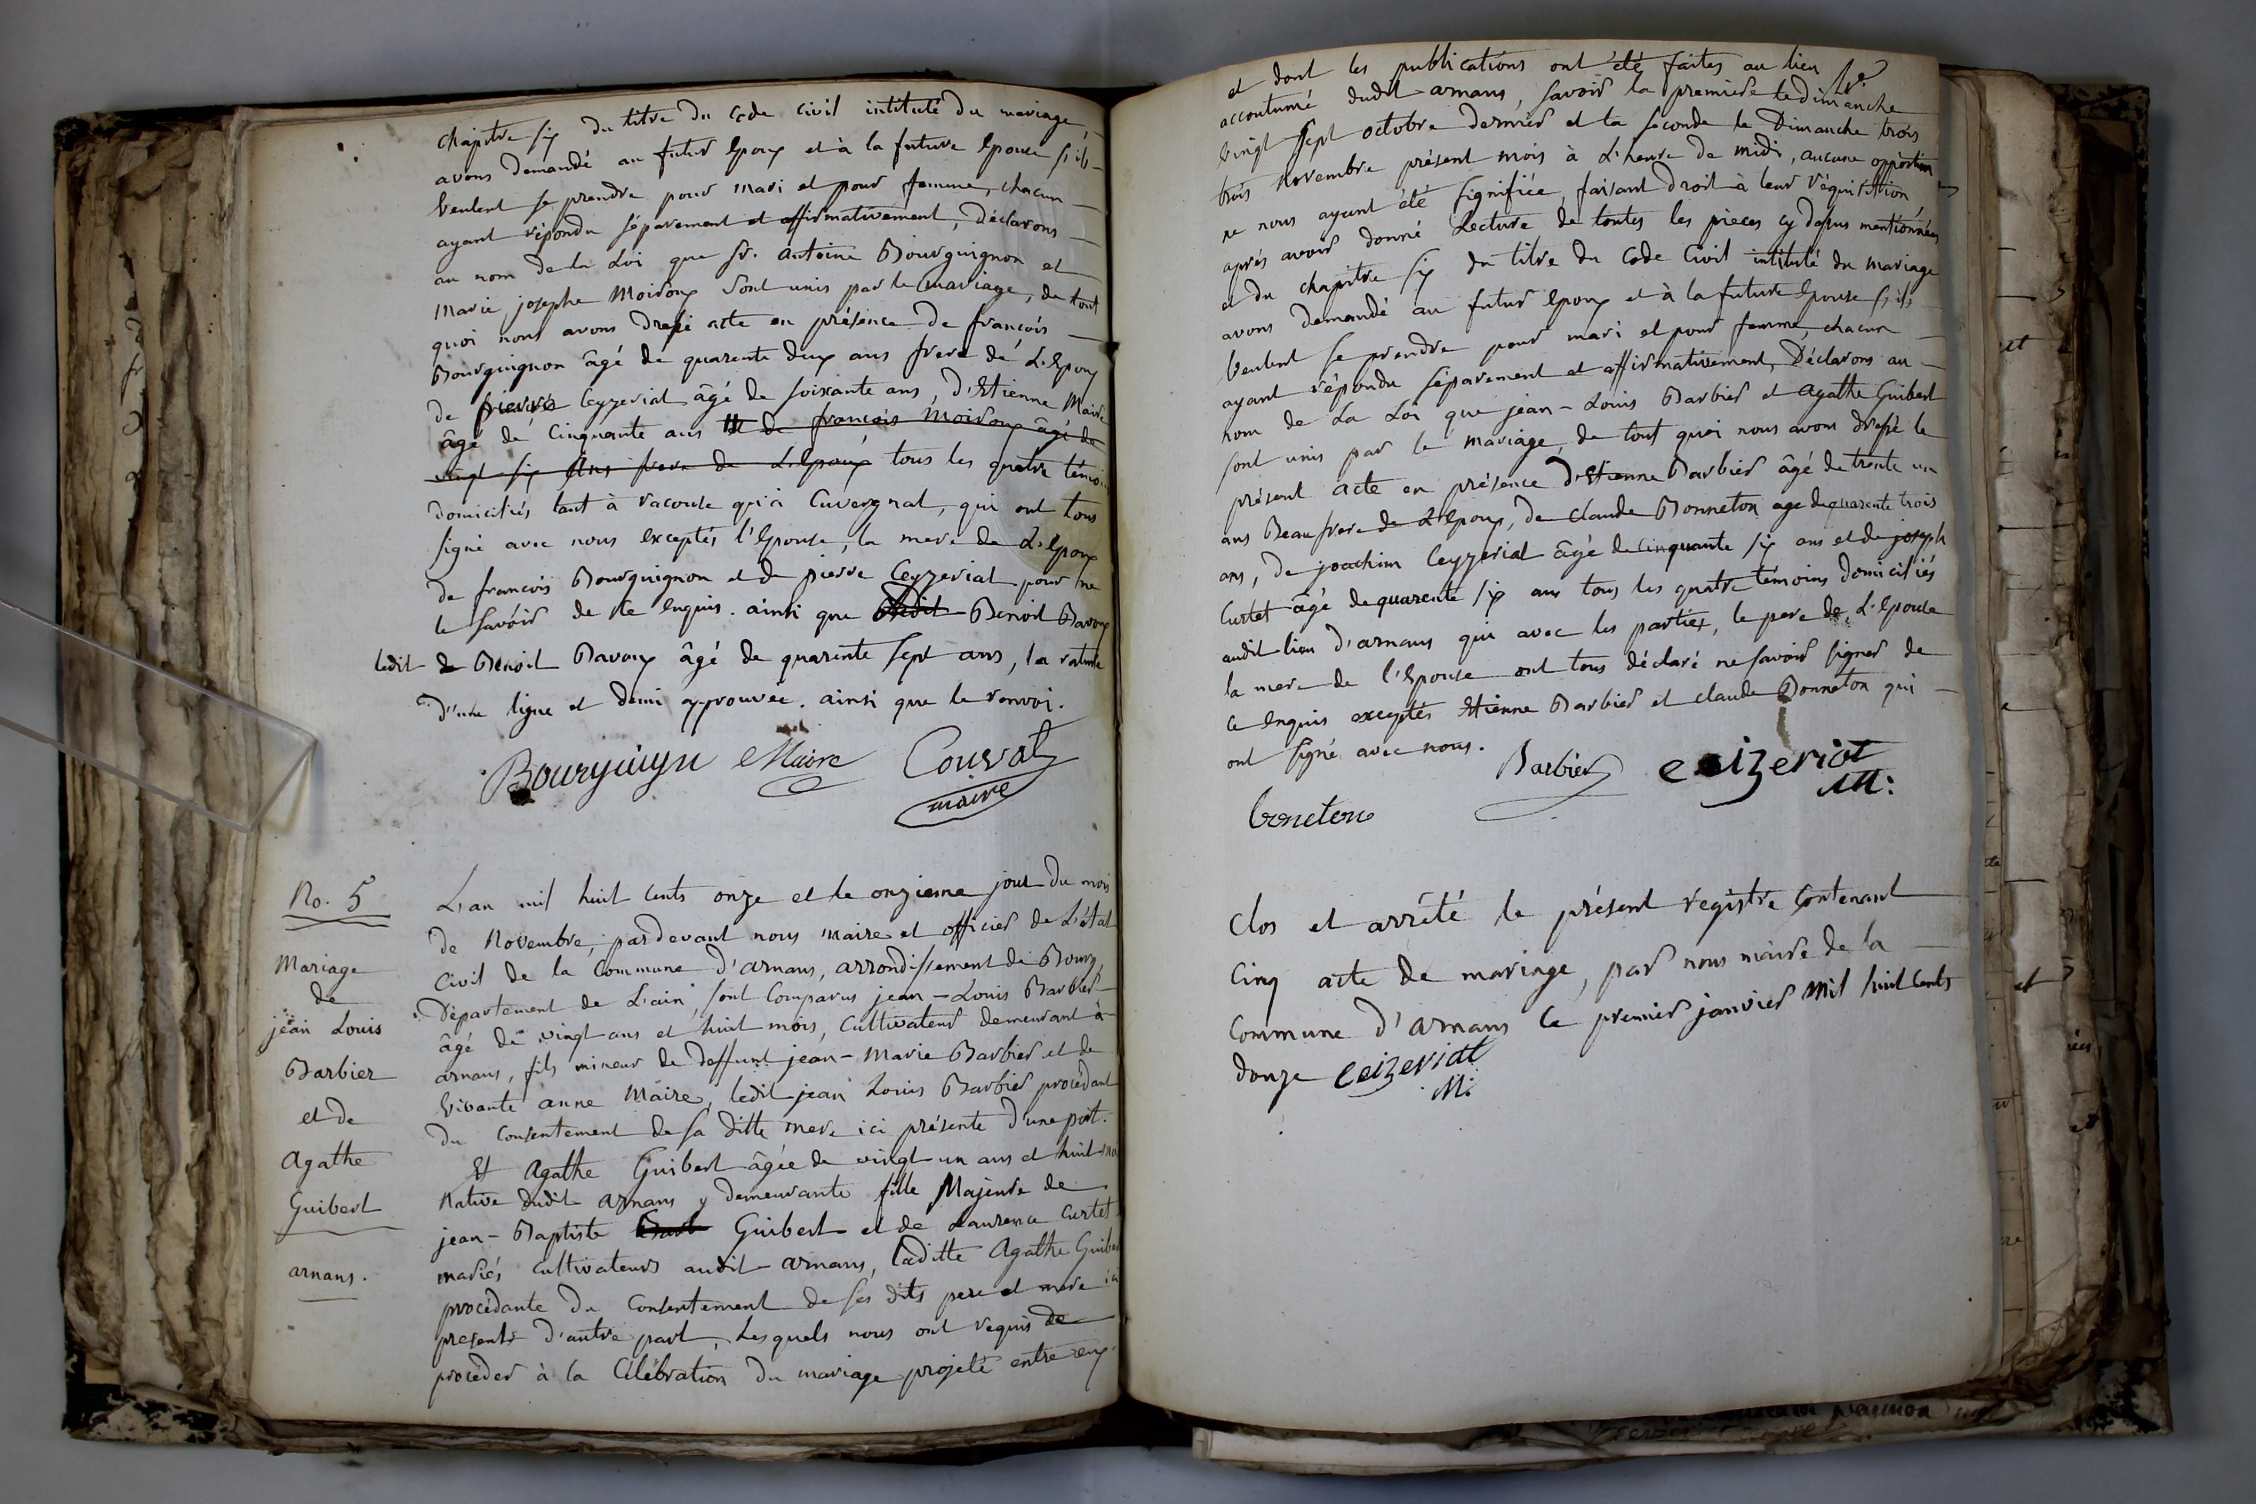 chapitre six du titre du Code civil intitulé du mariage,
avons demandé au futur Epoux et à la future Epouse s'ils
veulent se prendre pour mari et pour femme, chacun
ayant répondu séparement et affirmativement, déclarons
au nom de la Loi que Sr. antoine Bourguignon et
Marie josephe Moiroux sont unis par le mariage, de tout
quoi nous avons dressé acte en présence de françois
Bourguignon âgé de quarente deux ans frere de L'Epoux
de pierre Ceyzeriat âgé de soixante ans, d'Etienne Maire
âgé de Cinquante ans et de françois Moiroux âgé de
vingt six ans frere de L'Epoux tous les quatre témoins
domiciliés tant à racoule qu'à Cuvergnat, qui ont tous
signé avec nous exceptés l'Epouse, la mere de L'Epoux
de françois Bourguignon et de pierre Ceyzeriat pour ne
le savoir de ce enquis. ainsi que Benoit Bavoux
ledit Benoit Bavoux âgé de quarente sept ans, la rature
d'une ligne et demi approuvée. ainsi que le renvoi.
Bourguign Maire Couvat
maire
No. 5
Mariage
de
jean Louis
Barbier
et de
Agathe
Guibert
arnans.
L'an mil huit cents onze et le onzieme jour du mois
de Novembre, pardevant nous maire et officier de L'état
Civil de la Commune d'arnans, arrondissement de Bourg,
Département de L'ain, sont Comparus jean-Louis Barbier
âgé de vingt ans et huit mois, Cultivateur demeurant à
arnans, fils mineur de deffunt jean-Marie Barbier et de
vivante anne Maire, ledit jean Louis Barbier procédant
du consentement de sa ditte mere ici présente d'une part.
Et Agathe Guibert âgée de vingt un ans et huit mois
Native dudit arnans y demeurante fille Majeure de
jean-Baptiste Guibert et de Laurence Curtet
mariés cultivateurs audit arnans, laditte Agathe Guibert
procédante du Consentement de ses dits pere et mere ici
presents d'autre part, Lesquels nous ont requis de
procéder à la Célébration du mariage projeté entre eux
et dont les publications ont été faites au lieu
accoutumé dudit arnans, savoir la premiere le dimanche
vingt sept octobre dernier et la seconde le Dimanche trois
trois Novembre présent mois à L'heure de midi, aucune opposition
ne nous ayant été signifiée, faisant droit à leur réquisition,
après avoir donné Lecture de toutes les pieces cy dessus mentionnées
et du chapitre six du titre du Code Civil intitulé du mariage
avons demandé au futur Epoux et à la future Epouse s'ils
veulent se prendre pour mari et pour femme, chacun
ayant répondu séparement et affirmativement, Déclarons au
nom de La Loi que jean-Louis Barbier et Agathe Guibert
sont unis par le mariage, de tout quoi nous avons dressé le
présent acte en présence d'Etienne Barbier âgé de trente un
ans Beaufrere de L'Epoux, de Claude Bonneton age de quarente trois
ans, de joachim Ceyzeriat âgé de cinquante six ans et de joseph
Curtet âgé de quarente six ans tous les quatre témoins domiciliés
audit lieu d'arnans qui avec les parties, le pere de L'Epouse
la mere de l'Epouse ont tous déclaré ne savoir signer de
ce enquis exceptés Etienne Barbier et claude Bonneton qui
ont signé avec nous.
Barbier ceizeriat
M:
boneton
Clos et arrêté le présent registre Contenant
Cinq acte de mariage, par nous maire de la
Commune d'arnans ce premier janvier mil huit cents
douze ceizeriat
M: